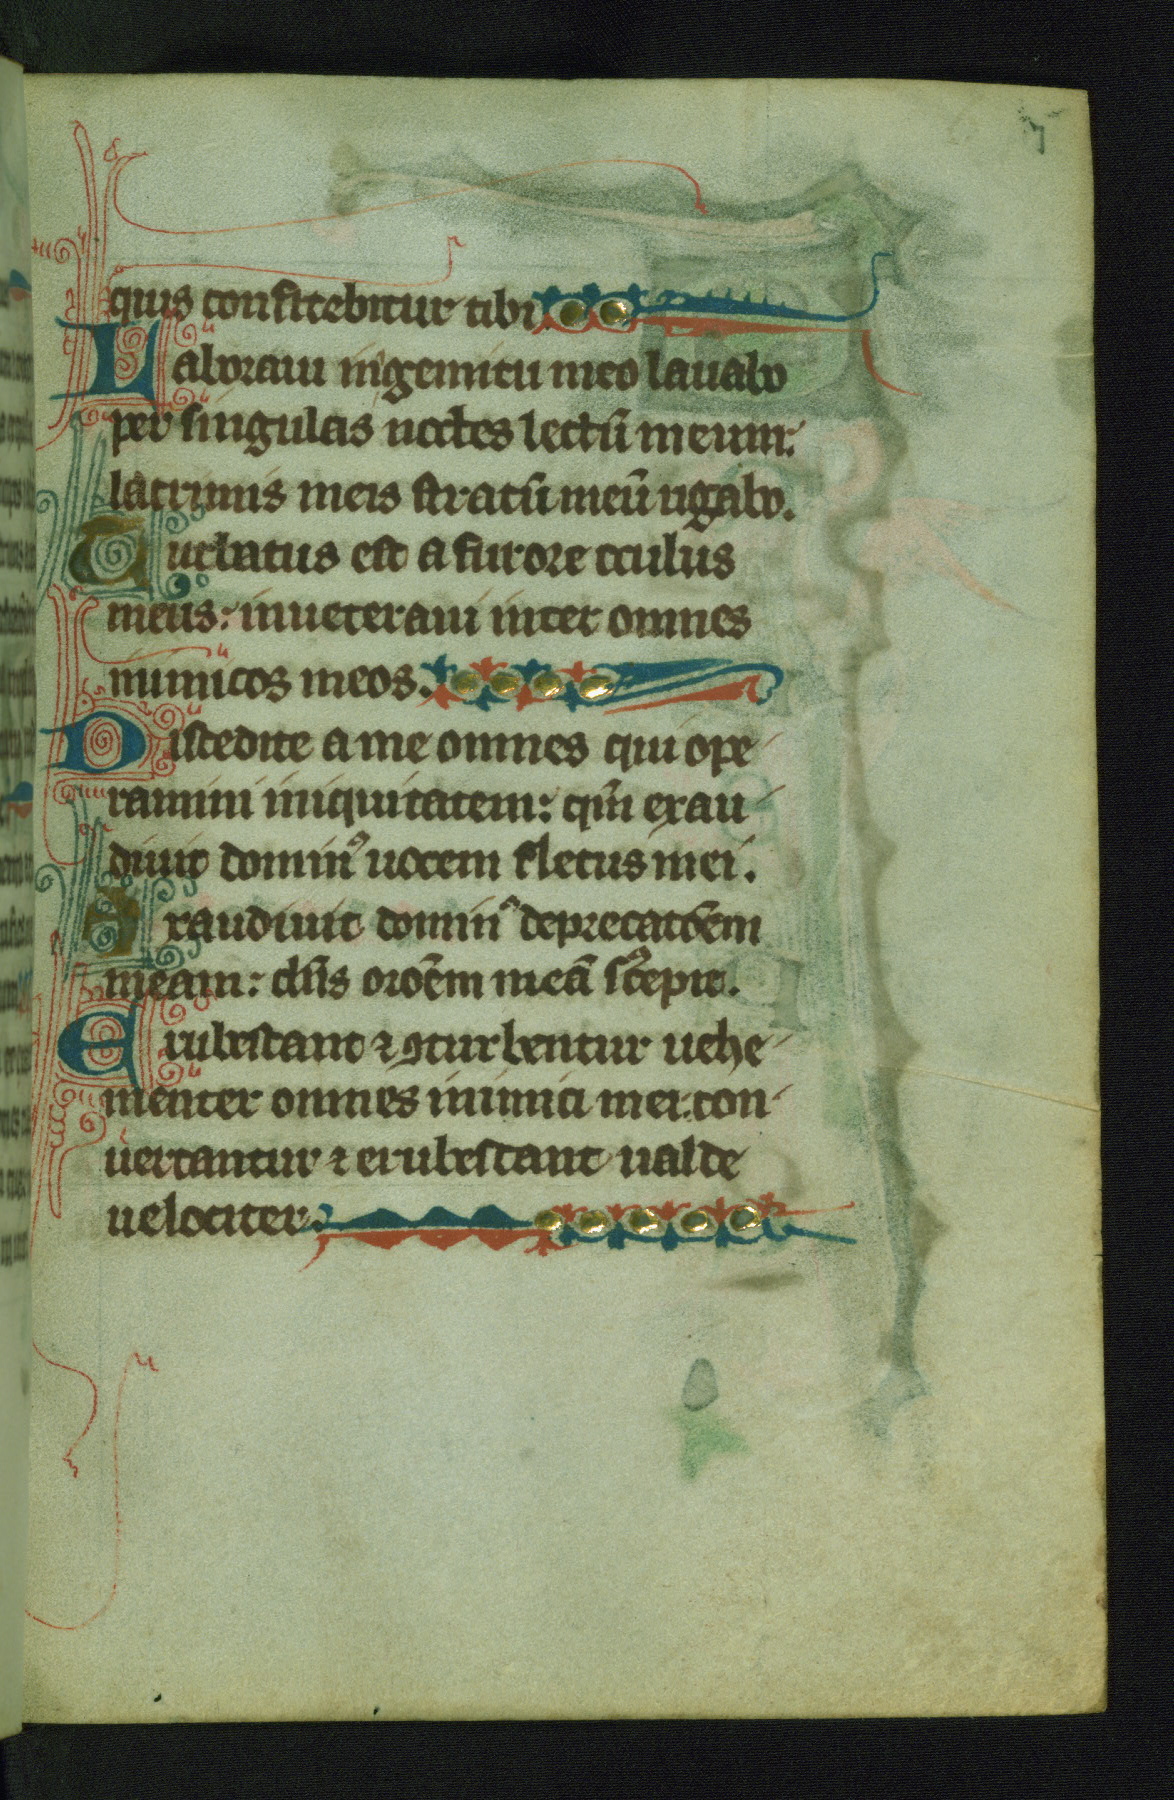 quis confitebitur tibi
Laboraui in gemitu meo lauabo
per singulas noctes lectū meum:
lacrimis meis stratū meū rigabo.
Turbatus est a furore oculus
meus: inueteraui inter omnes
inimicos meos.
Discedite a me omnes qui ope
ramini iniquitatem: qm̄ exau
diuit dominꝰ uocem fletus mei.
Exaudiuit dominꝰ deprecatōem
meam: dn̄s orōem meā suscepit.
Erubescant ⁊ ꝯturbentur uehe
menter omnes inimici mei: con
uertantur ⁊ erubescant ualde
uelociter.